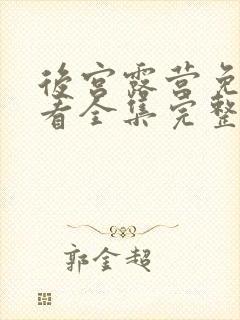 後宫露营免
看全集完整
郭金超